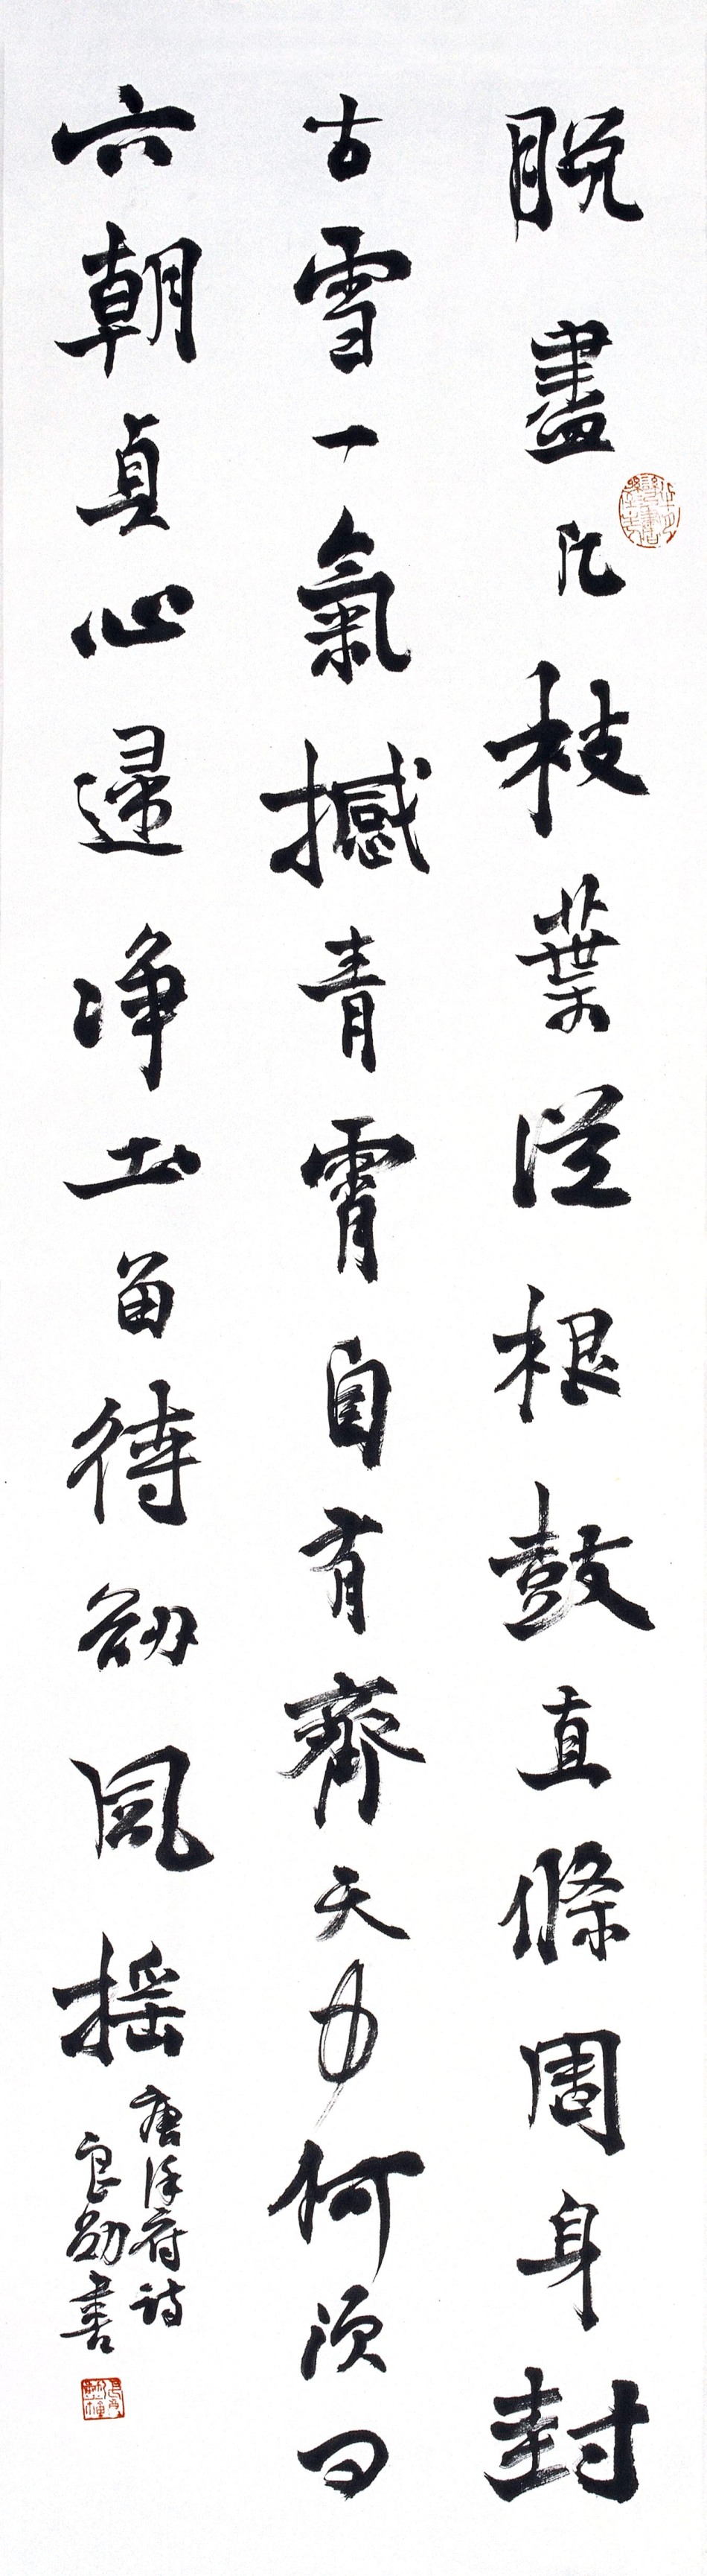 脫盡凡枝葉從根鼓直條周身封
古雪一氣撼青霄自有齊天力何須白
六朝貞心歸淨土留待劲風搖
唐 府詩
良劭書